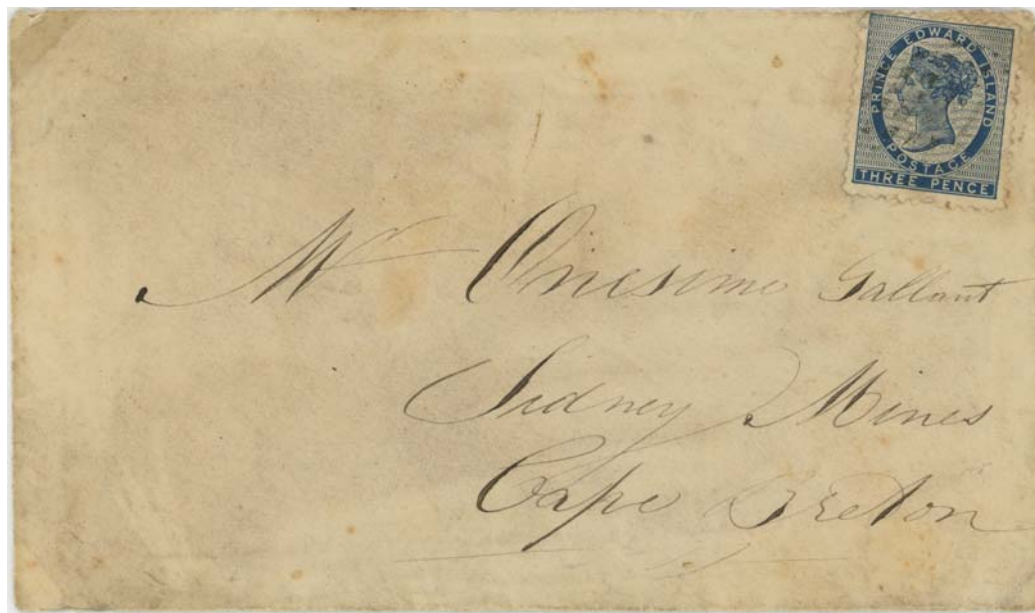 PRINCE EDWARD ISLAND
POSTAGE
THREE PENCE
Mr Onesime Gallant
Sidney Mines
Cape Breton